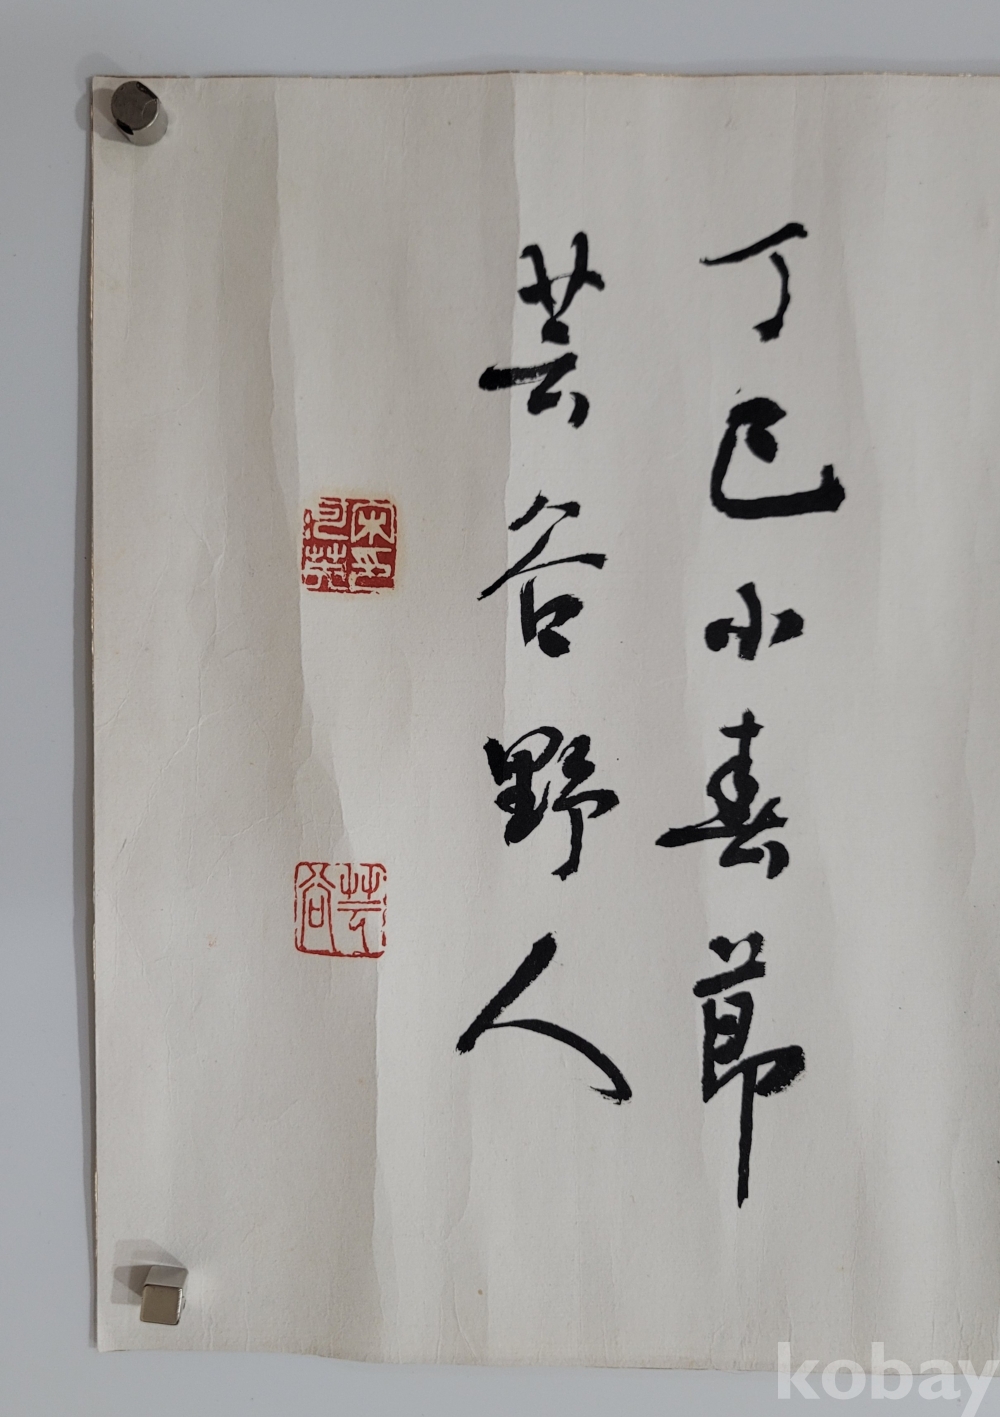 丁巳小春節
芸谷野人
芸谷
kobay